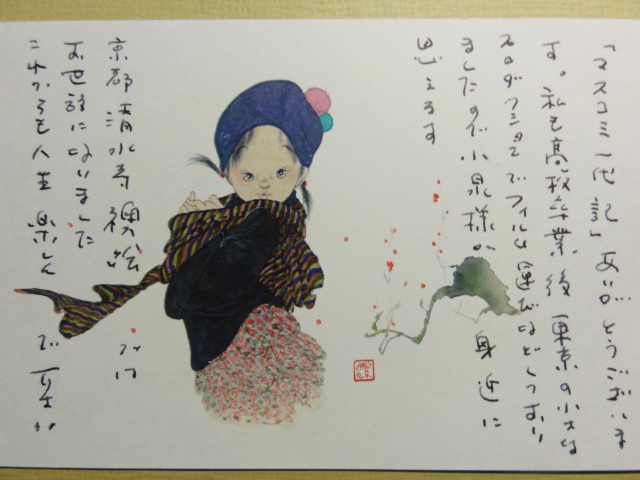 「マスコミ一代記」ありがとうございま
す。私も高校卒業後東京の小さな
プロダクションでフィルム運びなどしており
ましたので小泉様が身近に
思えます
京都清水寺襖絵では
お世話になりました
これからも人生楽しんで下さい